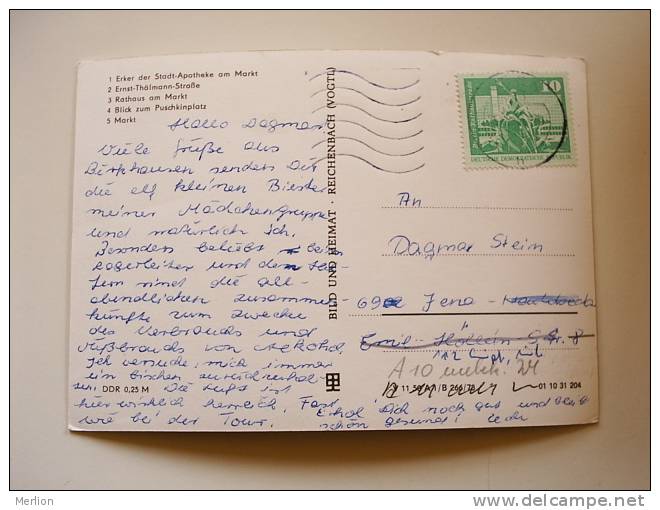 1 Erker der Stadt-Apotheke am Markt
2 Ernst-Thälmann-Straße
3 Rathaus am Markt
4 Blick zum Puschkinplatz
5 Markt
Hallo Dagmar
Viele Grüße aus
senden Dir
die elf kleinen Biester
meiner Mädchengruppe
und natürlich ich.
Besonders beliebt beim
Lagerleiter und dem
sind die all-
abendlichen zusammen-
künfte zum Zwecke
des Verbrauchs und
von Alkohol.
Ich versuche, mich immer
ein bischen zurückzuhal-
ten. Die Luft ist
hier wirklich herrlich. Fast
wie bei der Tour.
Erhol Dich noch gut und bleib
schön gesund!
DDR 0,25 M
BILD UND HEIMAT · REICHENBACH (VOGTL)
10
DEUTSCHE DEMOKRATISCHE REPUBLIK
An
Dagmar Stein
69 Jena -
Emil - Str. 8
A 10
01 10 31 204
Merlion
www.delcampe.net